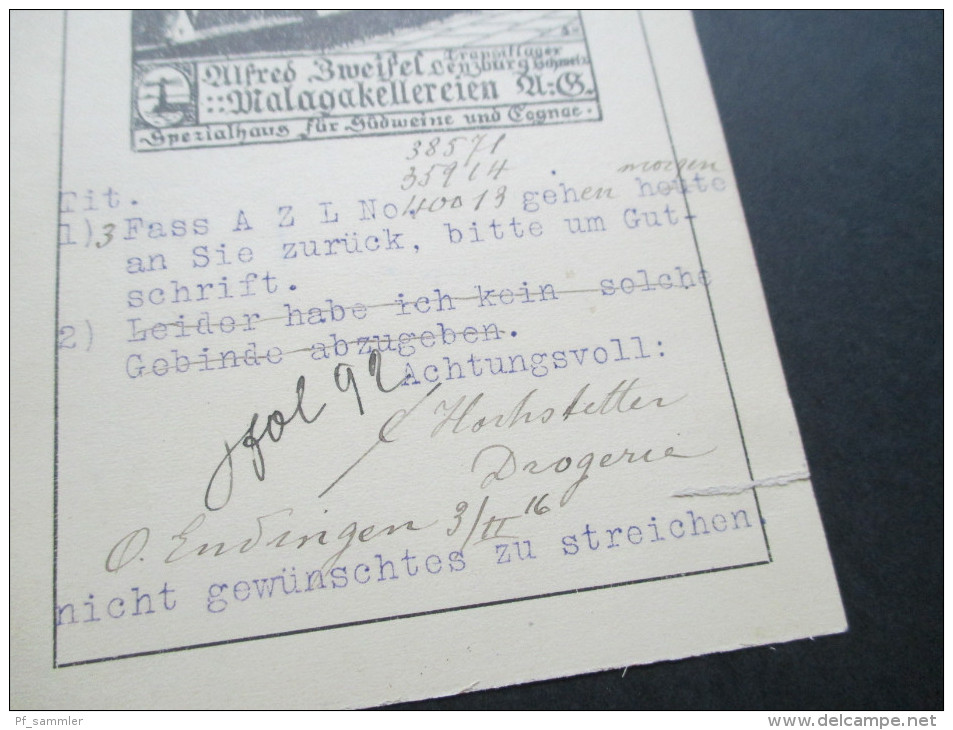 Alfred Zweifel Lenzburg Schweiz
Transitlager
::Malagakellereien A:G.
Spezialhaus für Südweine und Cognac.
38571
35914
Tit.
morgen
1) 3 Fass A Z L No. 40013 gehen heute
an Sie zurück, bitte um Gut-
schrift.
2) Leider habe ich kein solche
Gebinde abzugeben.
Achtungsvoll:
Hochstetter
Drogerie
O. Endingen 3/II 16
nicht gewünschtes zu streichen.
Pf_sammler
www.delcampe.net